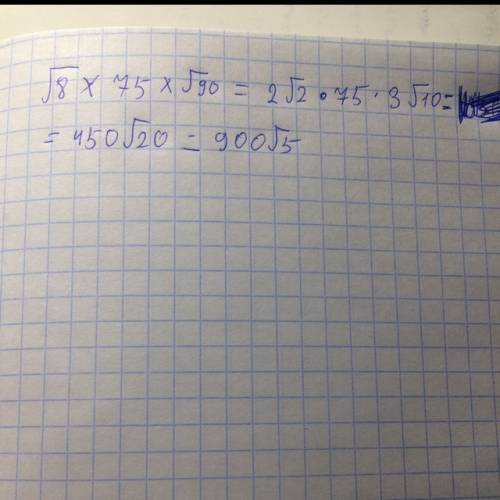 √8 × 75 × √90 = 2√2 • 75 · 3√10 =
= 450√20 = 900√5